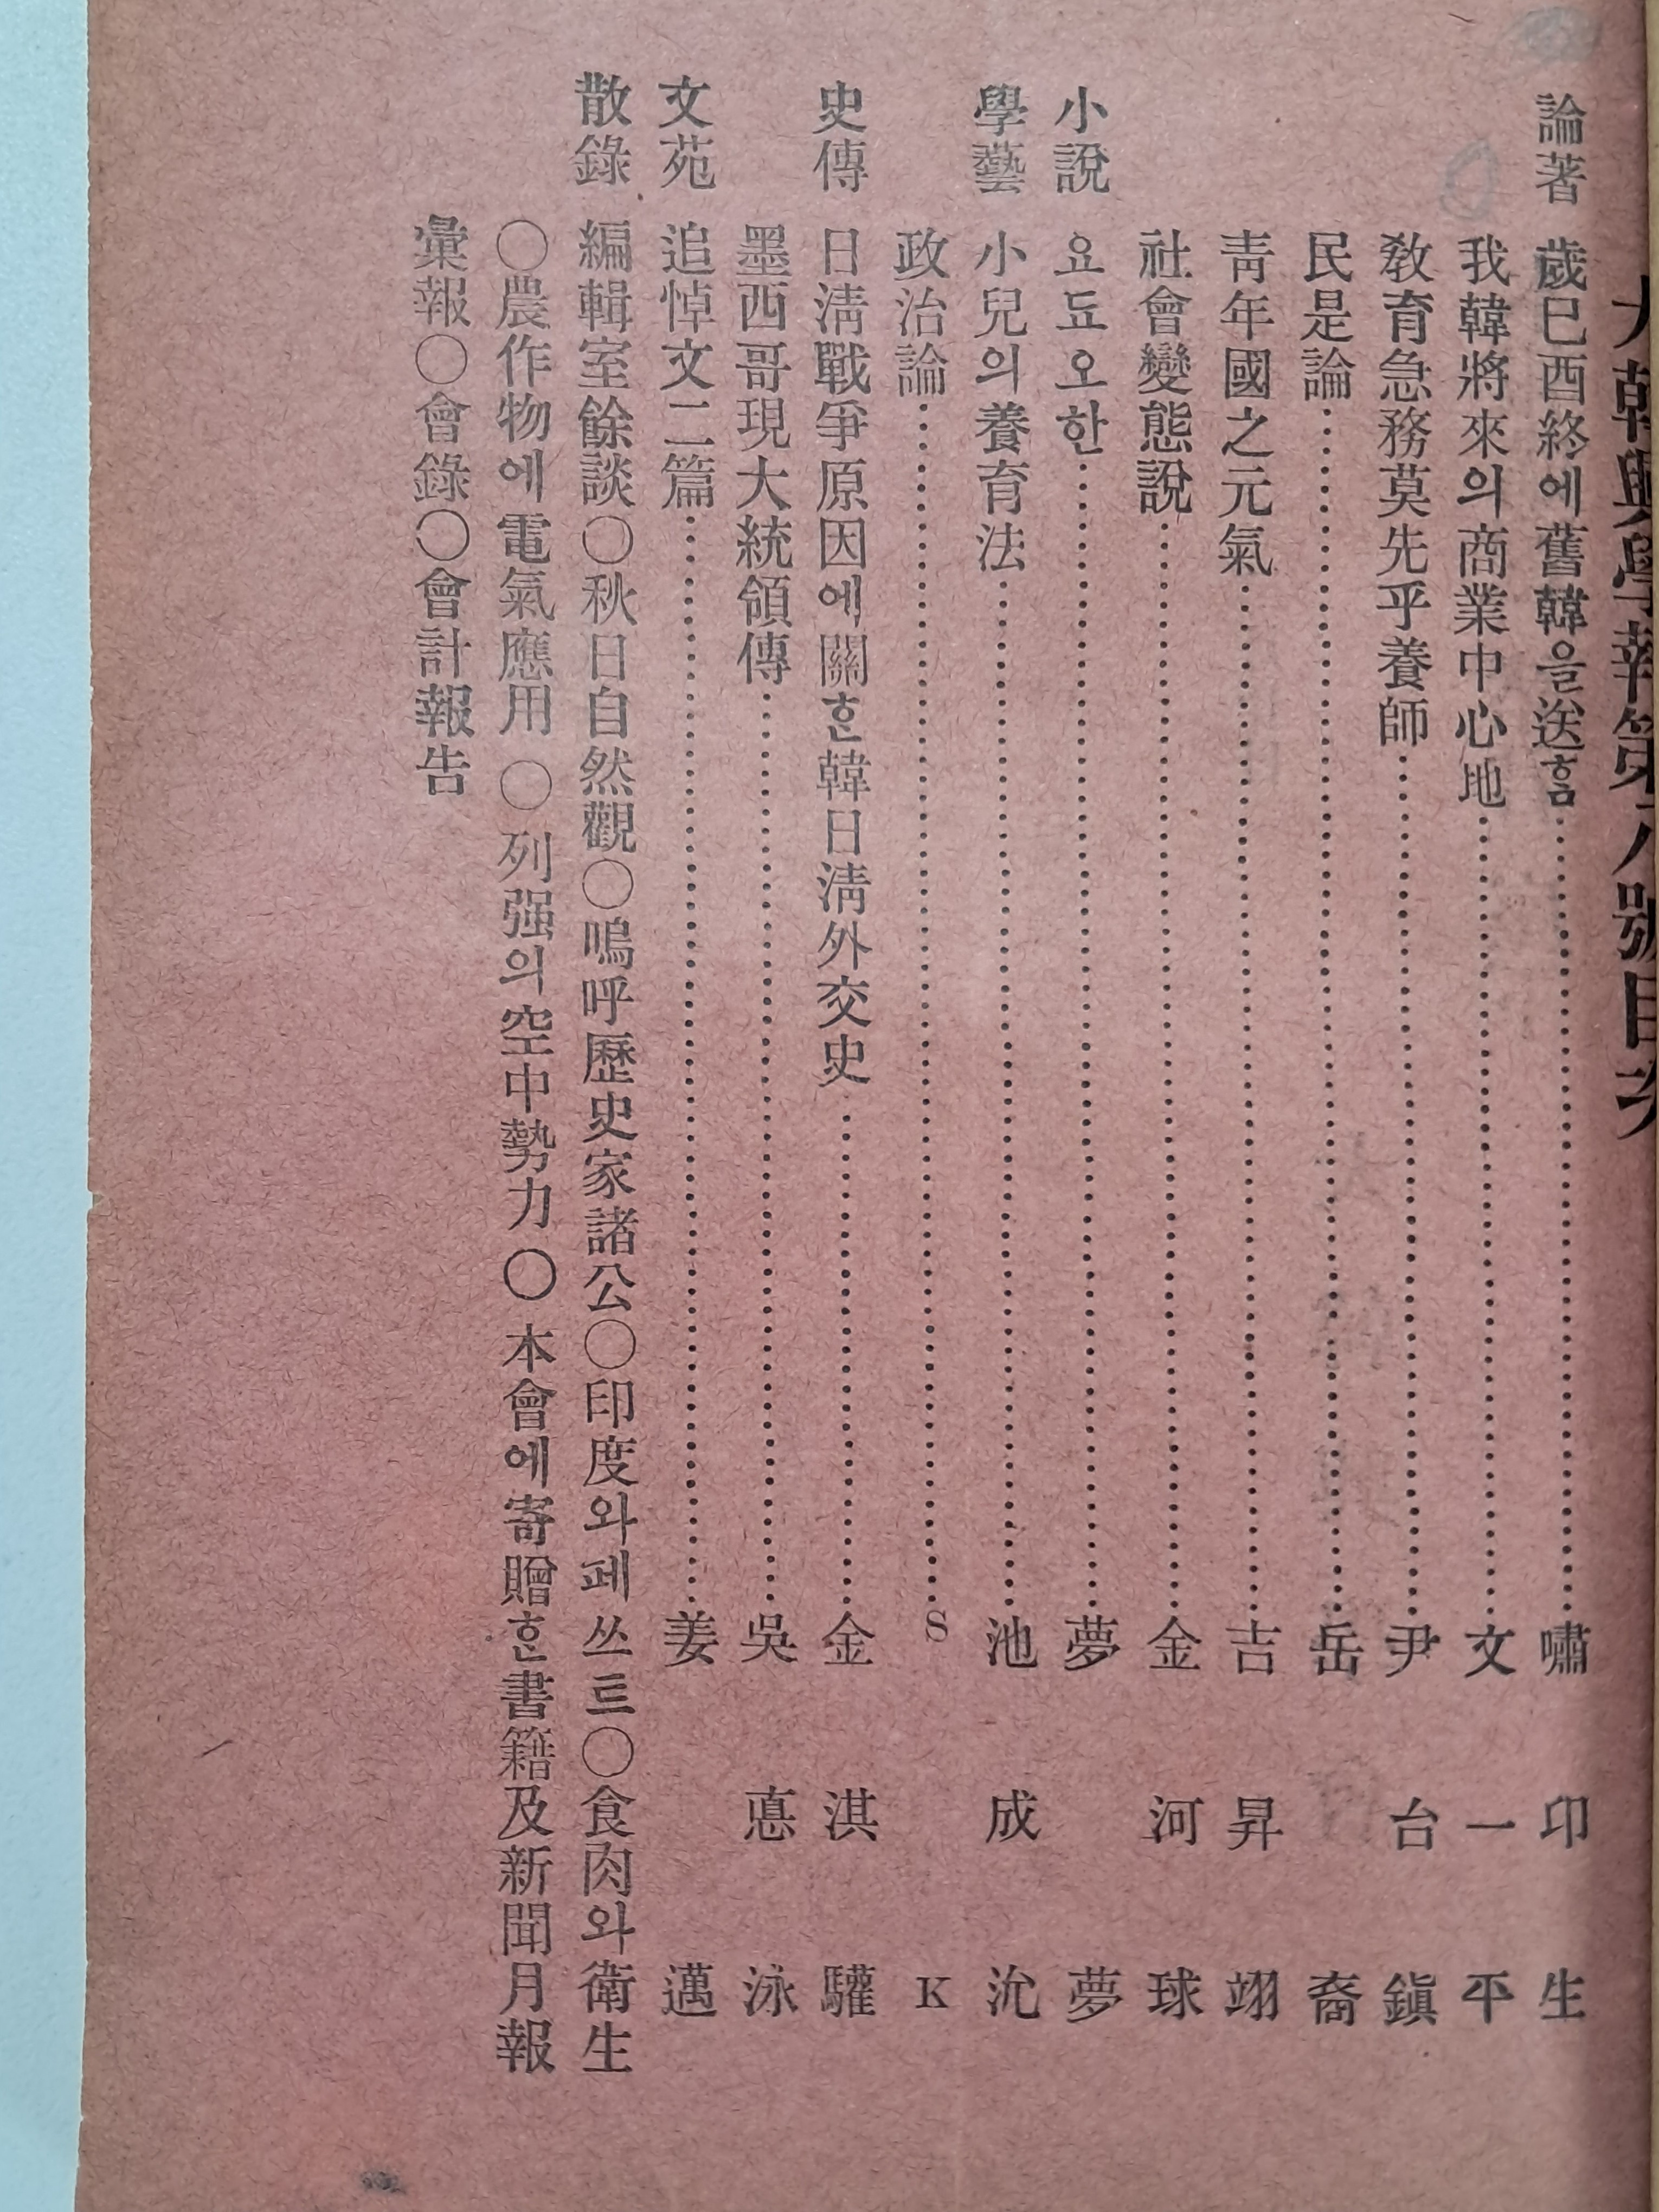 大韓興學報第八號目次
論著 歲巳酉終에舊韓을送홈 嘯印生
我韓將來의商業中心地 文一平
敎育急務莫先乎養師 尹台鎭
民是論 岳裔
靑年國之元氣 吉昇翊
社會變態說 金河球
小說 요됴오한 夢夢
學藝 小兒의養育法 池成沇
政治論 S K
史傳 日淸戰爭原因에關ᄒᆞᆫ韓日淸外交史 金淇驩
墨西哥現大統領傳 吳悳泳
文苑 追悼文二篇 姜邁
散錄 編輯室餘談〇秋日自然觀〇嗚呼歷史家諸公〇印度와페쓰트〇食肉와衛生
〇農作物에電氣應用 〇列强의空中勢力〇本會에寄贈ᄒᆞᆫ書籍及新聞月報
彙報〇會錄〇會計報告